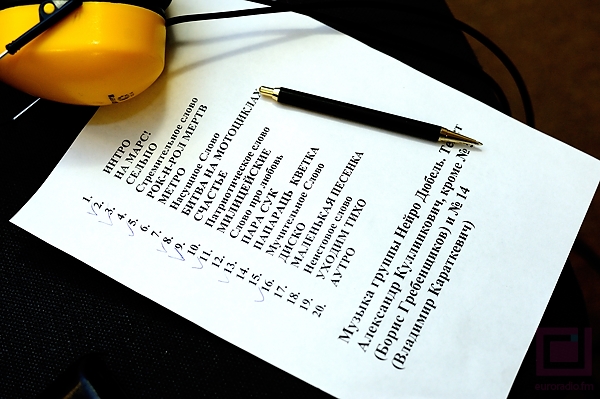 1. ИНТРО
2. НА МАРС!
3. СЕЛЬПО
4. Стремительное слово
5. РОК-Н-РОЛ МЕРТВ
6. МЕТРО
7. Насущное Слово
8. БИТВА НА МОТОЦИКЛАХ
9. СЧАСТЬЕ
10. Патриотическое слово
11. МИЛИЦЕЙСКИЕ
12. Слово про любовь
13. ПАРА СУК
14. ПАПАРАЦЬ КВЕТКА
15. Мучительное Слово
16. ДИСКО
17. МАЛЕНЬКАЯ ПЕСЕНКА
18. Неистовое слово
19. УХОДИМ ТИХО
20. АУТРО
Музыка группы Нейро Дюбель,
Александр Куллинкович, кроме №
(Борис Гребенщиков) и № 14
(Владимир Караткевич)
euroradio.fm